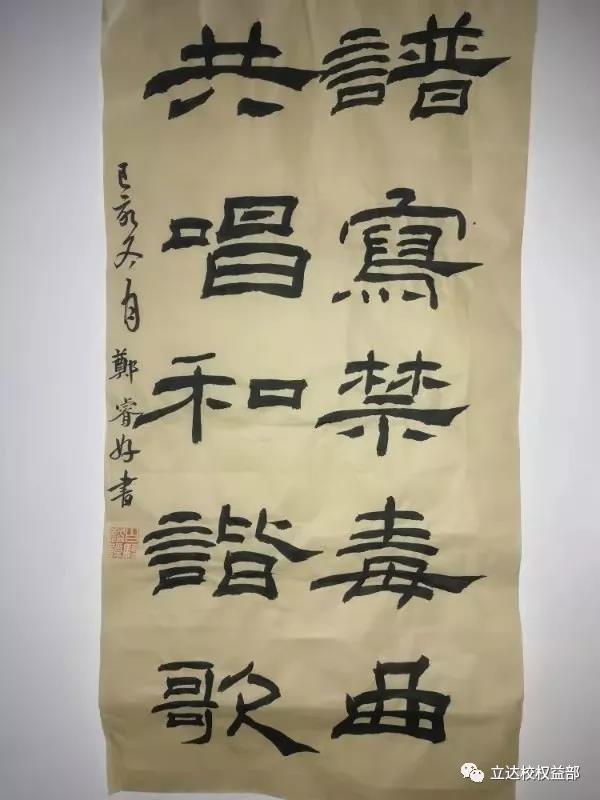 譜寫禁毒曲
共唱和諧歌
己亥冬月 鄭睿好書
立达校权益部